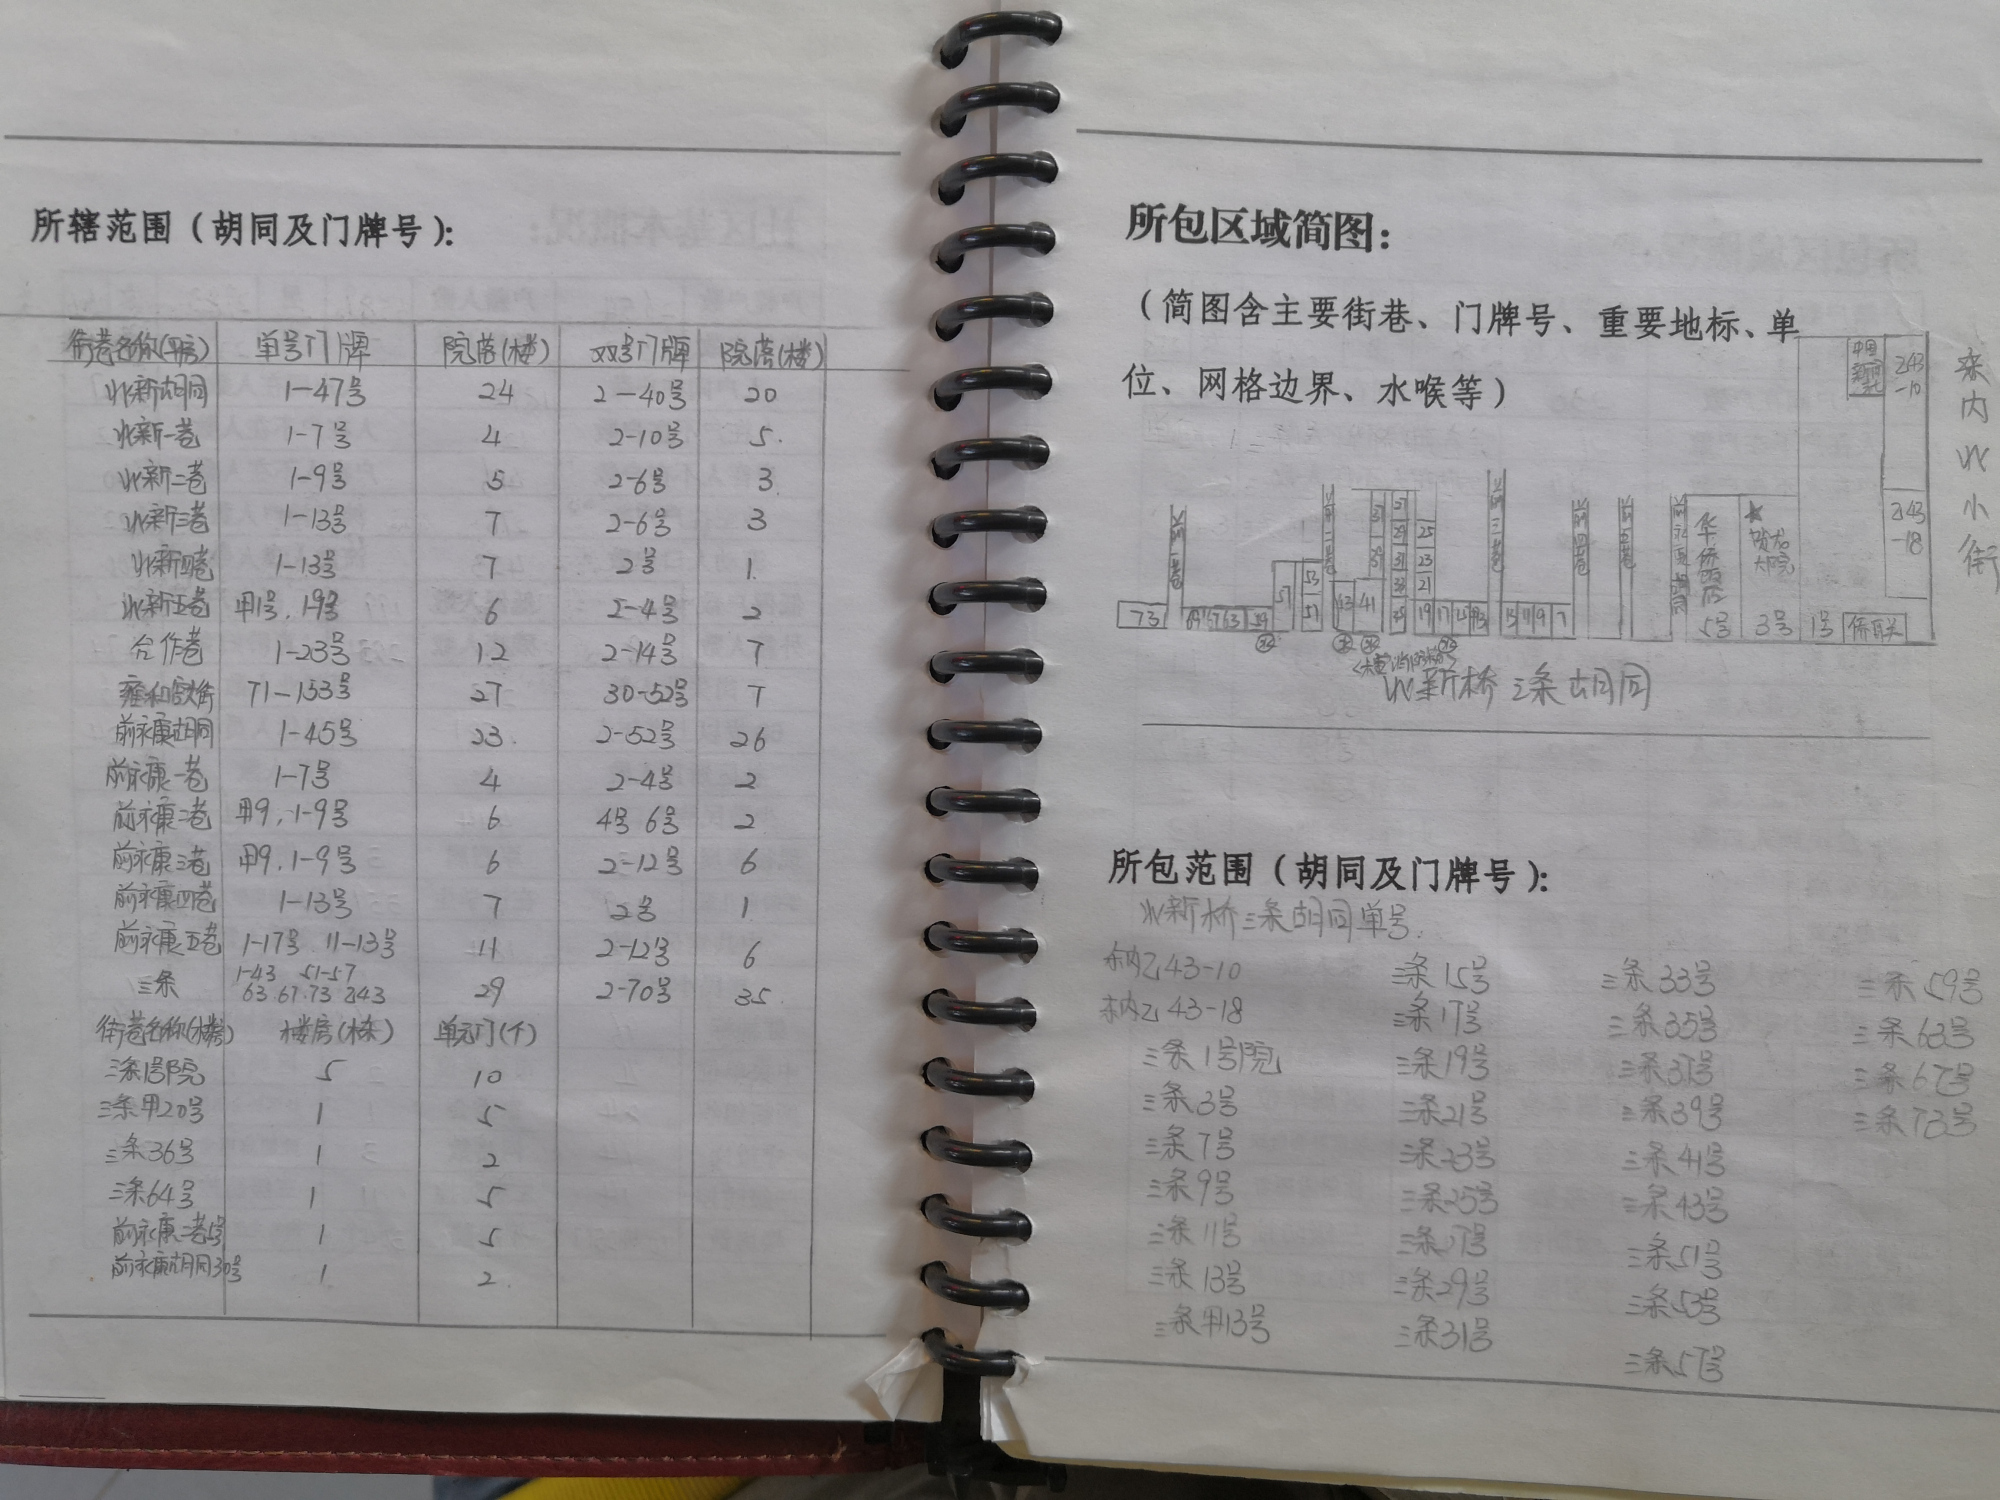 所辖范围（胡同及门牌号）：
街巷名称(平房) 单号门牌 院落(楼) 双号门牌 院落(楼)
北新胡同 1-47号 24 2-40号 20
北新一巷 1-7号 4 2-10号 5
北新二巷 1-9号 5 2-6号 3
北新三巷 1-13号 7 2-6号 3
北新四巷 1-13号 7 2号 1
北新五巷 甲1号.1-9号 6 2-4号 2
合作巷 1-23号 12 2-14号 7
雍和宫大街 71-153号 27 30-52号 7
前永康胡同 1-45号 23 2-52号 26
前永康一巷 1-7号 4 2-4号 2
前永康二巷 甲9.1-9号 6 4号 6号 2
前永康三巷 甲9.1-9号 6 2-12号 6
前永康四巷 1-13号 7 2号 1
前永康五巷 1-17号 11-13号 11 2-12号 6
三条 1-43 51-57 63.67.73 乙43 29 2-70号 35
街巷名称(楼房) 楼房(栋) 单元门(个)
三条1号院 5 10
三条甲20号 1 5
三条36号 1 2
三条64号 1 5
前永康二巷5号 1 5
前永康胡同30号 1 2
所包区域简图：
（简图含主要街巷、门牌号、重要地标、单
位、网格边界、水喉等）
中国新闻社
乙43-10
东内北小街
乙43-18
华侨饭店
5号
大院
3号
1号
侨联
73
63
57
53
51
43
41
37
27
29
31
25
23
21
19
17
11
9
7
北新桥三条胡同
所包范围（胡同及门牌号）：
北新桥三条胡同单号.
东内乙43-10 三条15号 三条33号 三条59号
东内乙43-18 三条17号 三条35号 三条63号
三条1号院 三条19号 三条37号 三条67号
三条3号 三条21号 三条39号 三条73号
三条7号 三条23号 三条41号
三条9号 三条25号 三条43号
三条11号 三条27号 三条51号
三条13号 三条29号 三条53号
三条甲13号 三条31号 三条57号